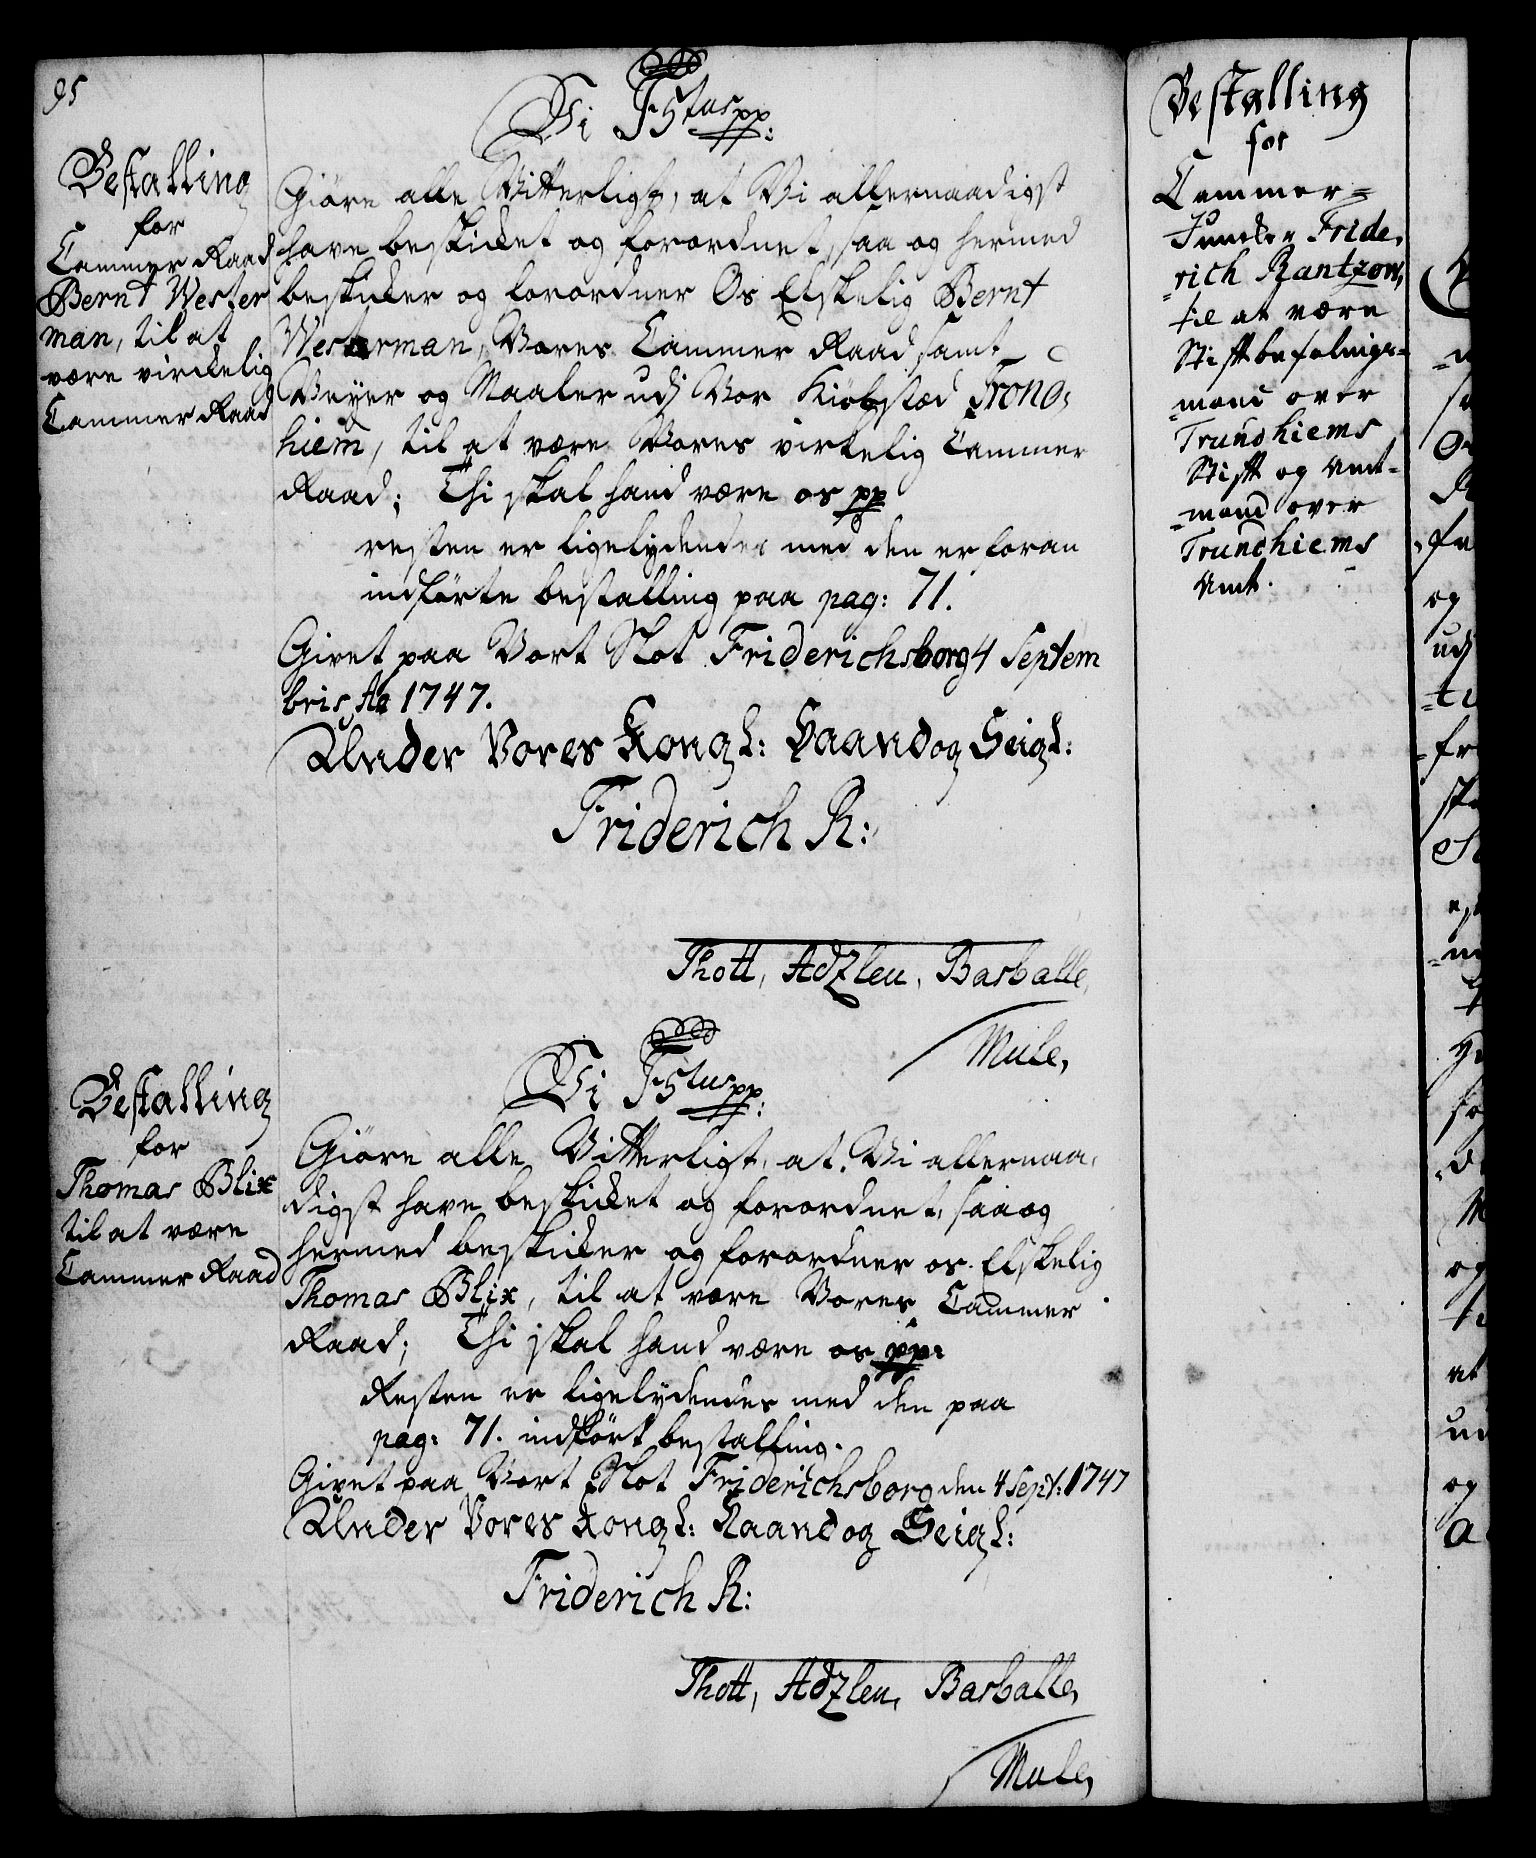 95
Bestalling
for
Cammer Raad
Bernt Wester
man, til at
være virckelig
Cammer Raad
Vi F5tus pp:
Giöre alle Vitterligt, at Vi allernaadigst
have beskicket og forordnet, saa og hermed
beskicker og forordner Os Elskelig Bernt
Westerman, Vores Cammer Raad samt
Veyer og Maaler udj Vor Kiöbstæd Trond,
hiem, til at være Vores virkelig Cammer
Raad; Thi skal hand være os pp
resten er ligelydendes med den er foran
indførte bestalling paa pag: 71.
Givet paa Vort Slot Friderichsborg 4 Septem
bris Ao 1747.
Under Vores Kongl: Haand og Seigl:
Friderich R:
Thott, Adzleu, Barballe,
Mule,
Bestalling
for
Thomas Blix
til at være
Cammer Raad
Vi F5tus pp:
Giöre alle Vitterligt, at Vi allernaa,
digst have beskicket og forordnet, saa og
hermed beskicker og forordner os Elskelig
Thomas Blix, til at være Vores Cammer
Raad; Thi skal hand være os pp:
Resten er ligelydendes med den paa
pag: 71. indført bestalling.
Givet paa Vort Slot Friderichsborg den 4 Sept: 1747
Under Vores Kongl: Haand og Seigl:
Friderich R:
Thott, Adzleu, Barballe,
Mule,
Bestalling
for
Cammer=
Juncker Fride,
=rich Rantzow,
til at være
Stiftbefalings=
=mand over
Trundhiems
Stift og Amt=
=mand over
Trundhiems
Amt.